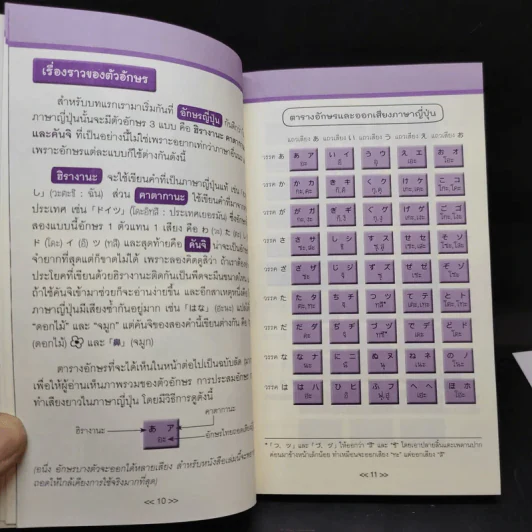 เรื่องราวของตัวอักษร
สำหรับบทแรกเรามาเริ่มกันที่ อักษรญี่ปุ่น กันดีกว่า
ภาษาญี่ปุ่นนั้นจะมีตัวอักษร 3 แบบ คือ ฮิรางานะ คาตาคานะ
และคันจิ ที่เป็นอย่างนี้ไม่ใช่เพราะอยากเท่กว่าภาษาอื่น
เพราะอักษรแต่ละแบบก็ใช้ต่างกันดังนี้
ฮิรางานะ จะใช้เขียนคำที่เป็นภาษาญี่ปุ่นแท้ เช่น
し」 (วะตะชิ : ฉัน) ส่วน คาตาคานะ ใช้เขียนคำที่มาจาก
ประเทศ เช่น「ドイツ」(โดะอิทสึ : ประเทศเยอรมัน) ซึ่งอักษร
สองแบบนี้อักษร 1 ตัวแทน 1 เสียง คือ わ (วะ) た (ตะ) し
ド (โดะ) イ (อิ) ツ (ทสึ) และสุดท้ายคือ คันจิ น่าจะเป็น
จำยากที่สุดแต่ก็ขาดไม่ได้ เพราะลองคิดดูสิว่า ถ้าเราต้อง
ประโยคที่เขียนด้วยฮิรางานะติดกันเป็นพืดจะมึนขนาดไหน
ถ้าใช้คันจิเข้ามาช่วยก็จะอ่านง่ายขึ้น และอีกสาเหตุหนึ่งคือ
ภาษาญี่ปุ่นมีเสียงซ้ำกันอยู่มาก เช่น「はな」(ฮะนะ) แปลว่า
"ดอกไม้" และ "จมูก" แต่คันจิของสองคำนี้เขียนต่างกัน คือ
(ดอกไม้) และ「鼻」(จมูก)
ตารางอักษรที่จะได้เห็นในหน้าต่อไปเป็นฉบับลัด
เพื่อให้ผู้อ่านเห็นภาพรวมของตัวอักษร การประสมอักษร
ทำเสียงยาวในภาษาญี่ปุ่น โดยมีวิธีการดูดังนี้
คาตาคานะ
ฮิรางานะ あ ア
อะ อักษรไทยถอดเสียง
(อนึ่ง อักษรบางตัวจะออกได้หลายเสียง สำหรับหนังสือเล่มนี้จะขอ
ถอดให้ใกล้เคียงการใช้จริงมากที่สุด)
<< 10 >>
ตารางอักษรและออกเสียงภาษาญี่ปุ่น
แถวเสียง あ แถวเสียง い แถวเสียง う แถวเสียง え แถวเสียง お
วรรค あ あ ア い イ う ウ え エ お オ
อะ อิ อุ เอะ โอะ
วรรค か か カ き キ く ク け ケ こ コ
วรรค が が ガ ぎ ギ ぐ グ げ ゲ ご ゴ
วรรค さ さ サ し シ す ス せ セ そ ソ
วรรค ざ ざ ザ じ ジ ず ズ ぜ ゼ ぞ ゾ
วรรค た た タ ち チ つ ツ て テ と ト
วรรค だ だ ダ ぢ ヂ づ ヅ で デ ど ド
วรรค な な ナ に ニ ぬ ヌ ね ネ の ノ
นะ นิ นุ เนะ โนะ
วรรค は は ハ ひ ヒ ふ フ へ ヘ ほ ホ
<< 11 >>